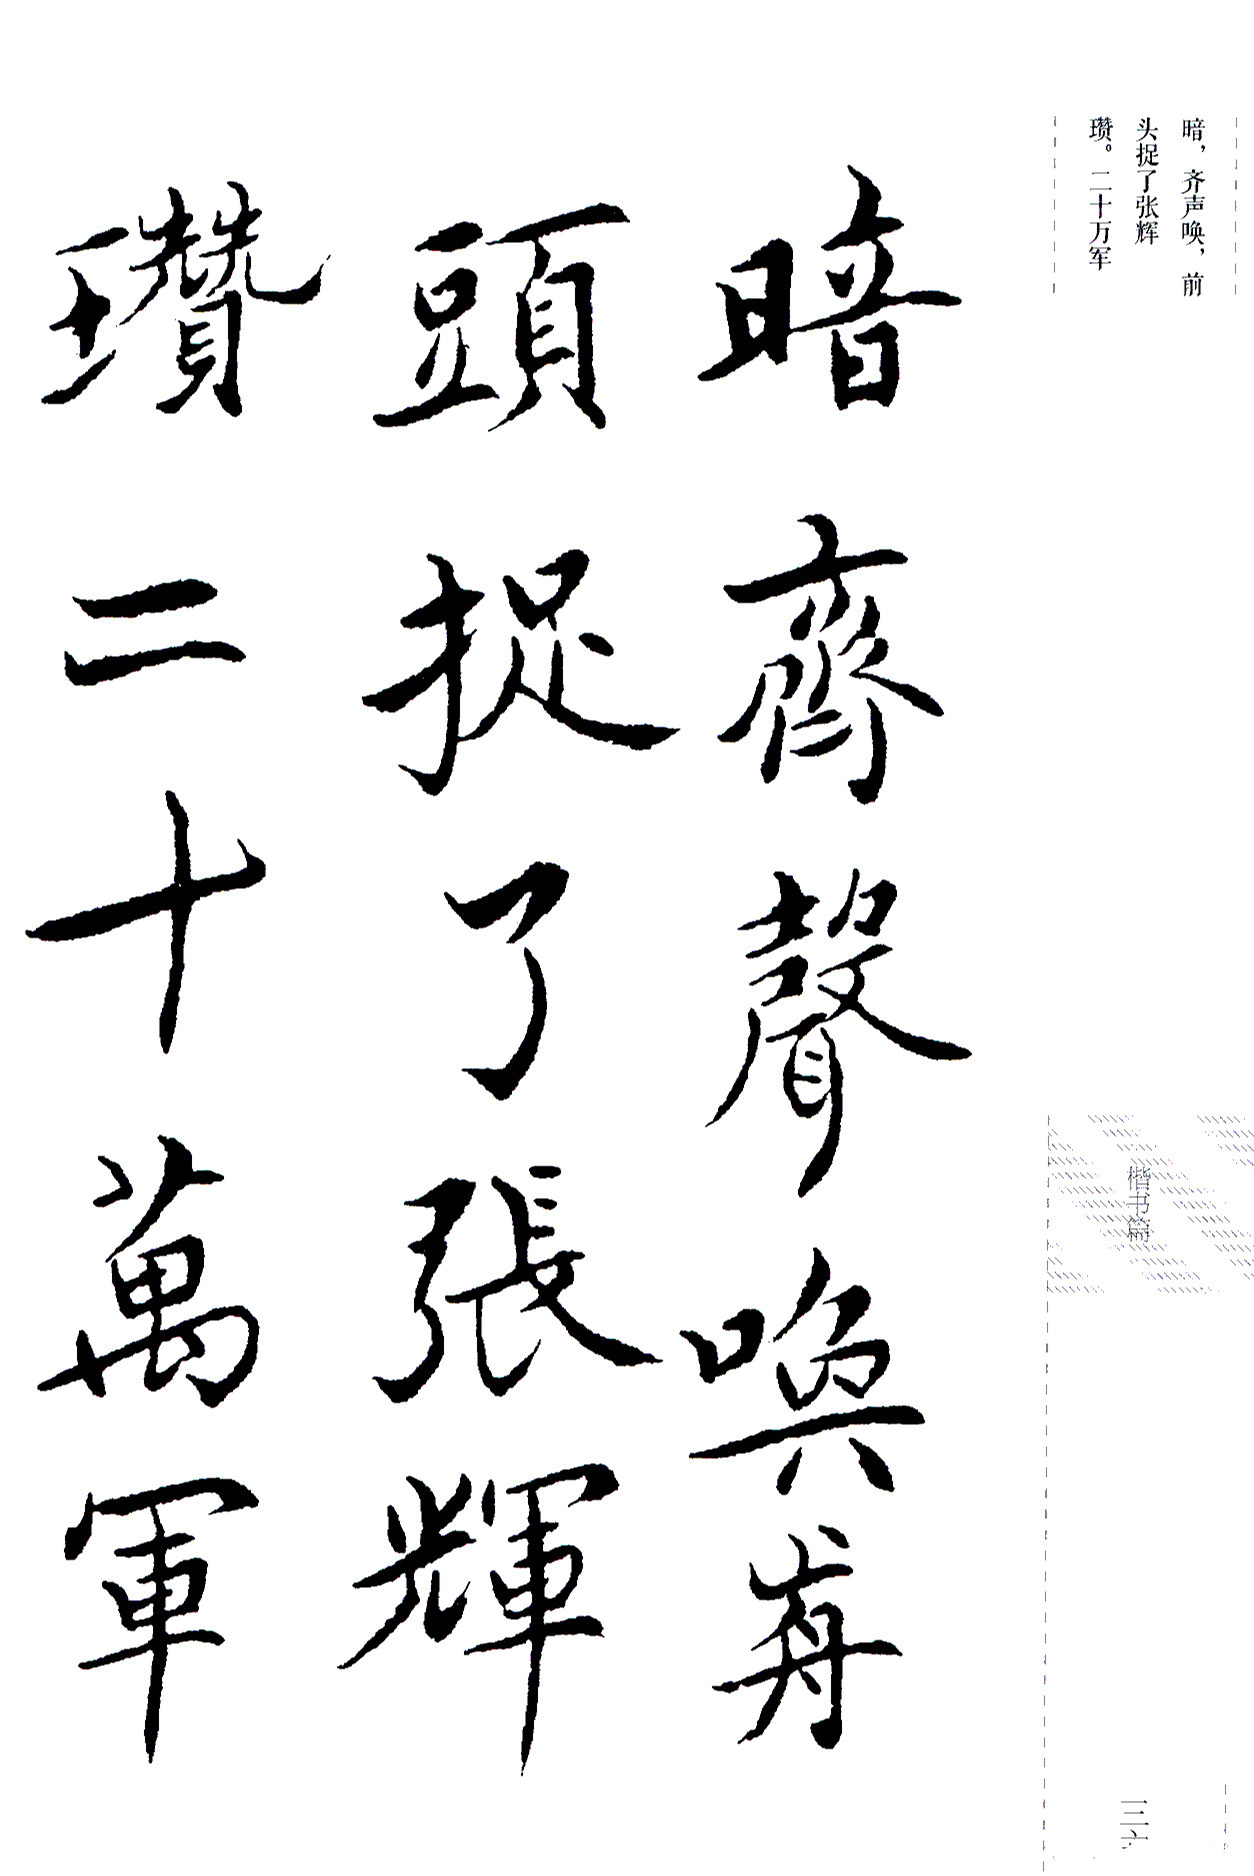 暗，齐声唤，前
头捉了张辉
瓒。二十万军
楷书篇
暗齊聲喚歬
頭捉了張輝
瓚二十萬軍